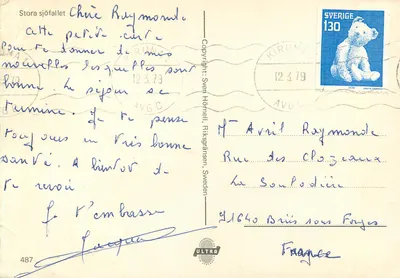 Stora sjöfallet
Chère Raymonde
cette petite carte
Pour te donner de mes
nouvelles lesquelles sont
bonne. Le séjour se
termine. Je te pense
toujours en très bonne
santé. A bientôt de
te revoir
Je t'embrasse
487
Copyright: Sven Hörnell, Riksgränsen, Sweden
ULTRA
SVERIGE
130
KIRUNA
12.3.79
AVG C
KIRUNA
12.3.79
AVG C
Mme Avril Raymonde
Rue des Clozeaux
La Souladière
91640 Briis sous Forges
France